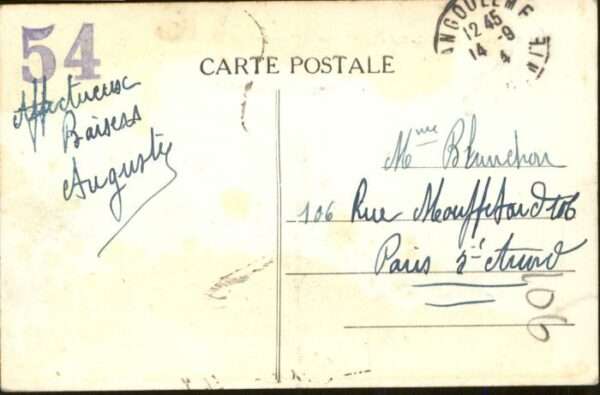 54
ANGOULEME
12 45
14 - 9
4
CARTE POSTALE
Affectueux
Baisers
Auguste
Mme Blanchon
106 Rue Mouffetard 106
Paris 5è Arrond
106